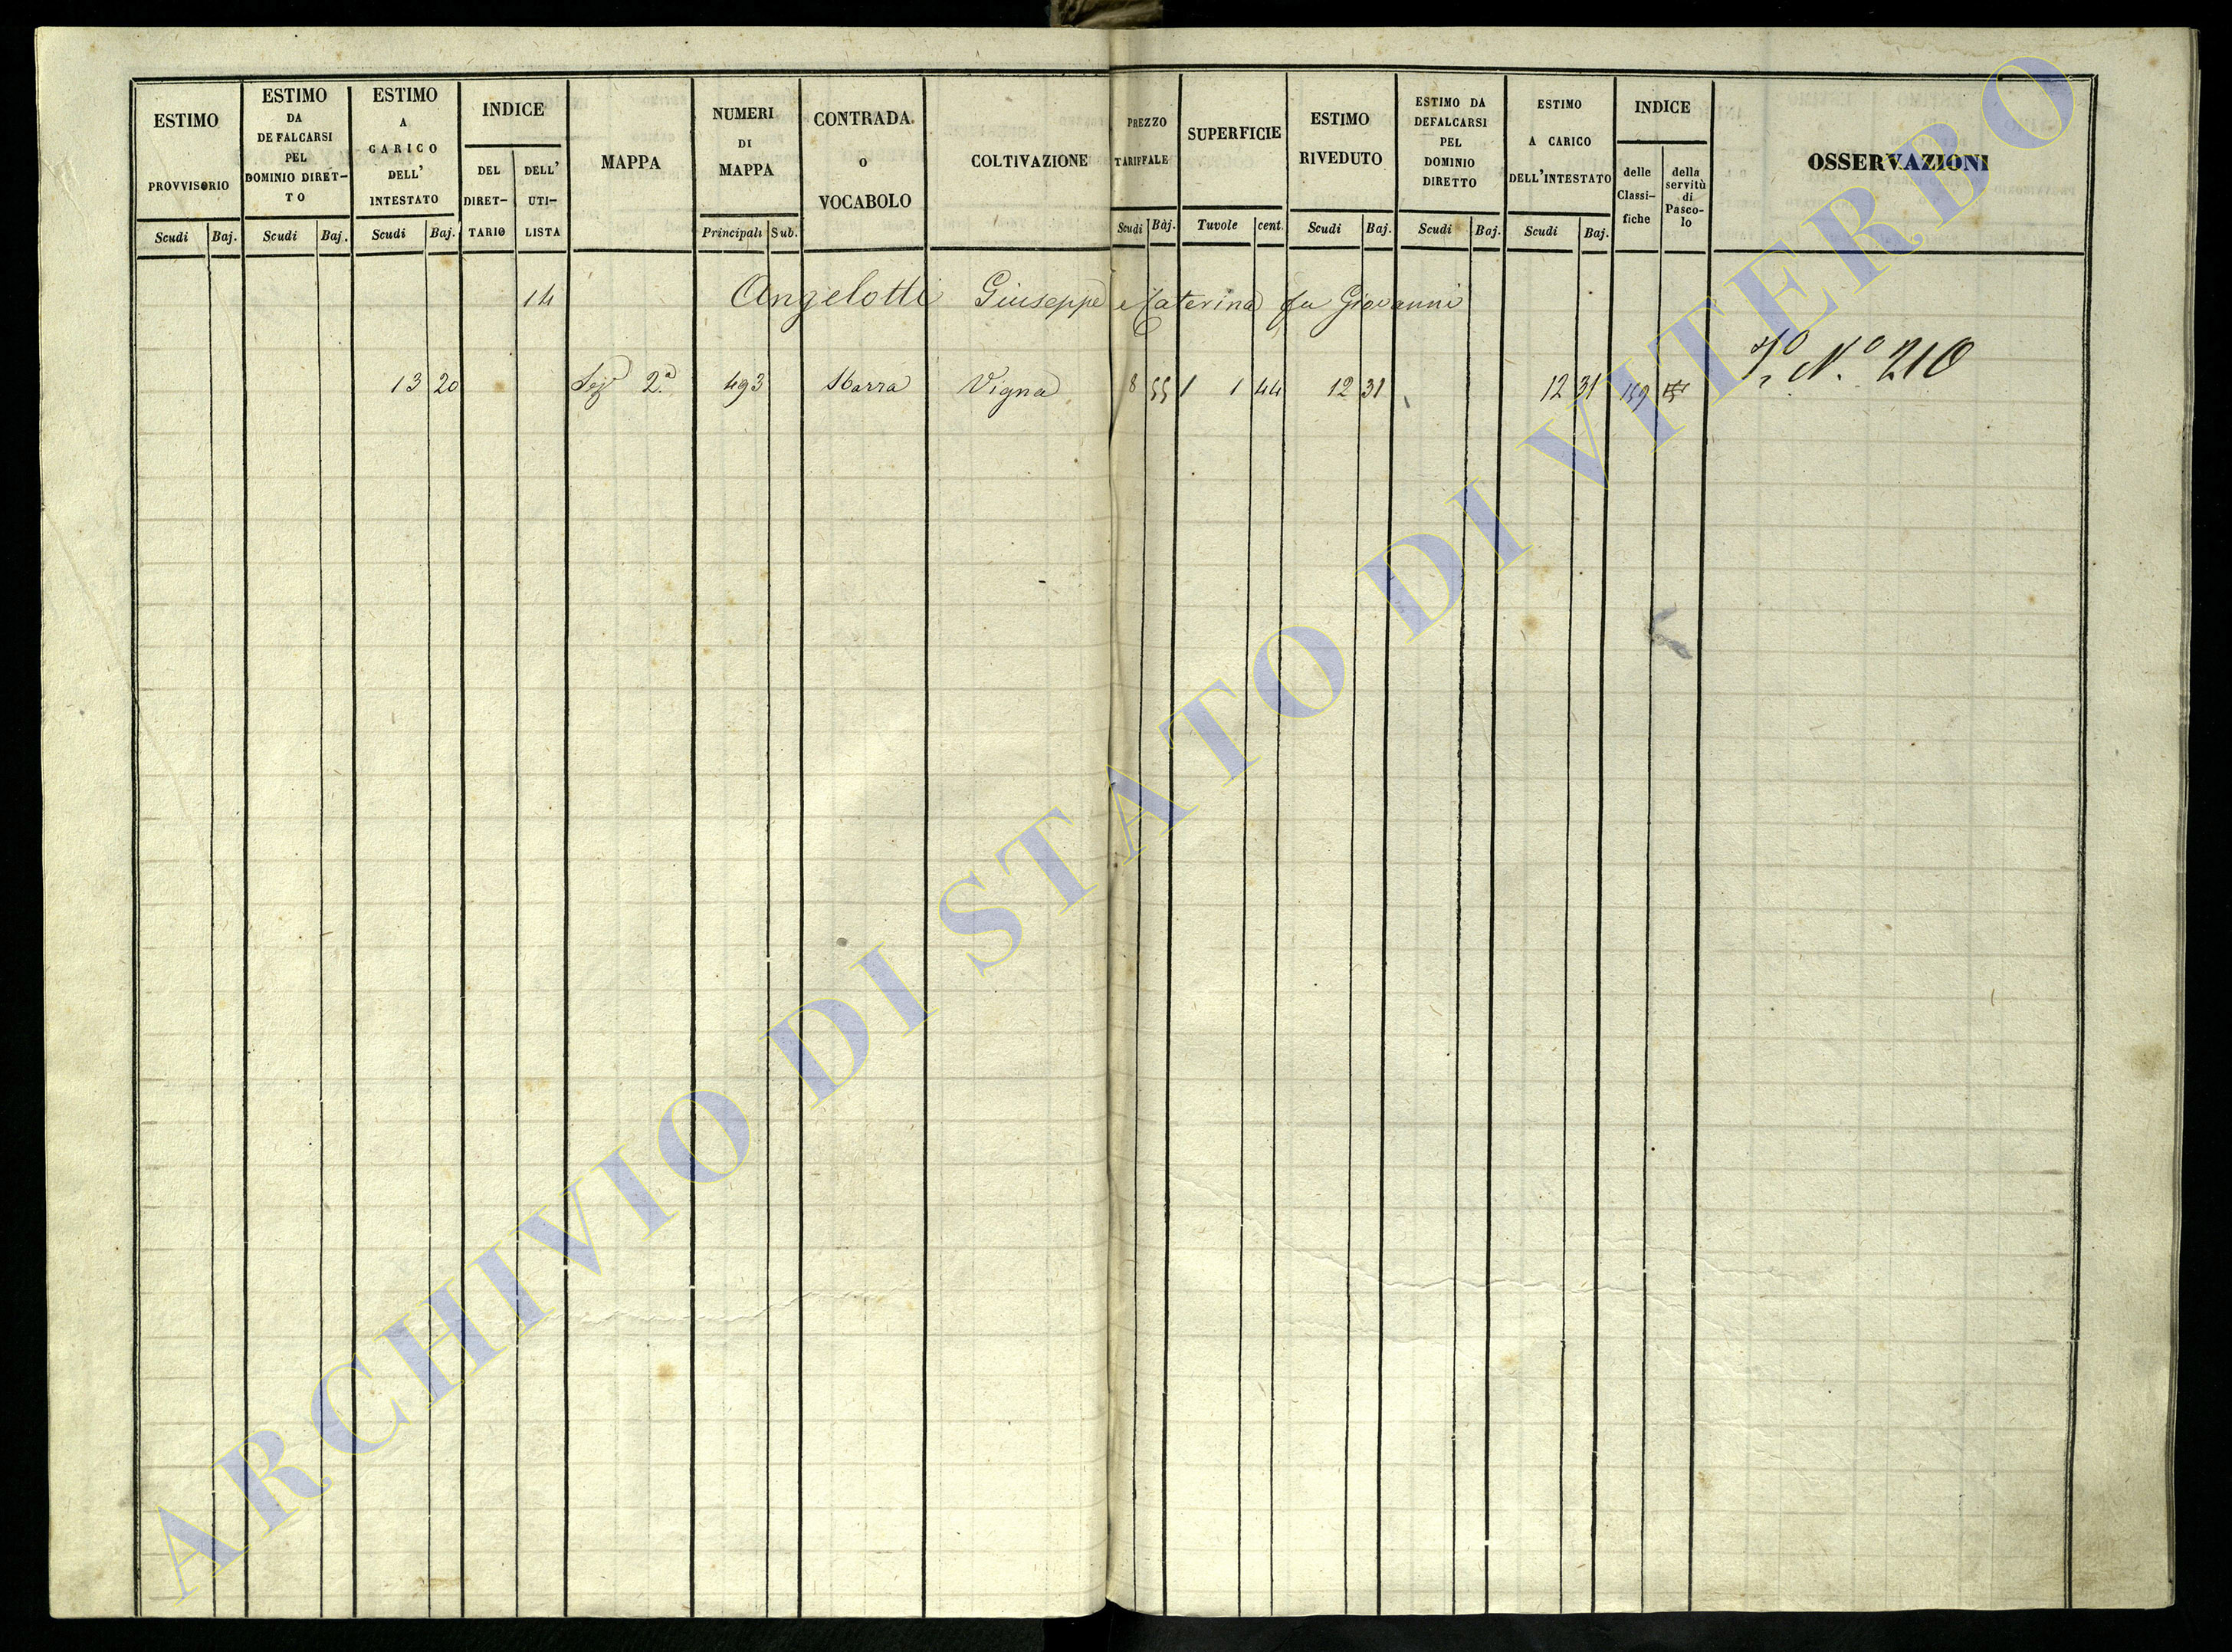 ESTIMO PROVVISORIO
ESTIMO DA DEFALCARSI PEL DOMINIO DIRET-TO
ESTIMO A CARICO DELL' INTESTATO
INDICE
DEL DIRET-TARIO
DELL' UTI-LISTA
MAPPA
NUMERI DI MAPPA
CONTRADA O VOCABOLO
COLTIVAZIONE
PREZZO TARIFFALE
SUPERFICIE
ESTIMO RIVEDUTO
ESTIMO DA DEFALCARSI PEL DOMINIO DIRETTO
ESTIMO A CARICO DELL'INTESTATO
INDICE
delle Classi-fiche
della servitù di Pasco-lo
OSSERVAZIONI
Scudi Baj. Scudi Baj. Scudi Baj. Principali Sub. Scudi Baj. Tavole cent. Scudi Baj. Scudi Baj. Scudi Baj.
14 Angelotti Giuseppe e Caterina fu Giovanni
N.º 210
13 20 2.ª 493 Sbarra Vigna 8 55 1 1 44 12 31 12 31 159
ARCHIVIO DI STATO DI VITERBO